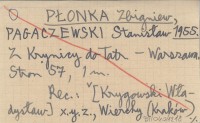 PŁONKA Zbigniew,
PAGACZEWSKI Stanisław 1955.
Z Krynicy do Tatr - Warszawa.
Stron 57, 1 m.
Rec.: "[Krygowski Wła-
dysław] x.y.z., Wierchy (Kraków)